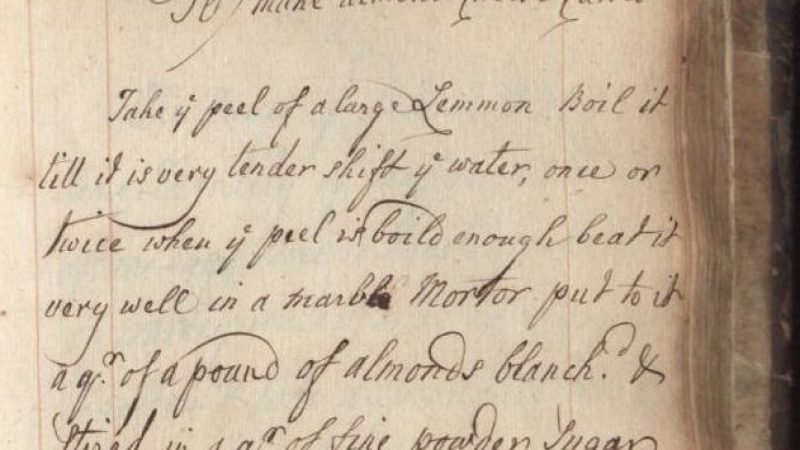 To make almond Cheese
Take ye peel of a large Lemmon Boil it
till it is very tender shift ye water, once or
twice when ye peel is boild enough beat it
very well in a marble Mortor put to it
a qr. of a pound of almonds blanch.d &
in a qr. of fine powder Sugar